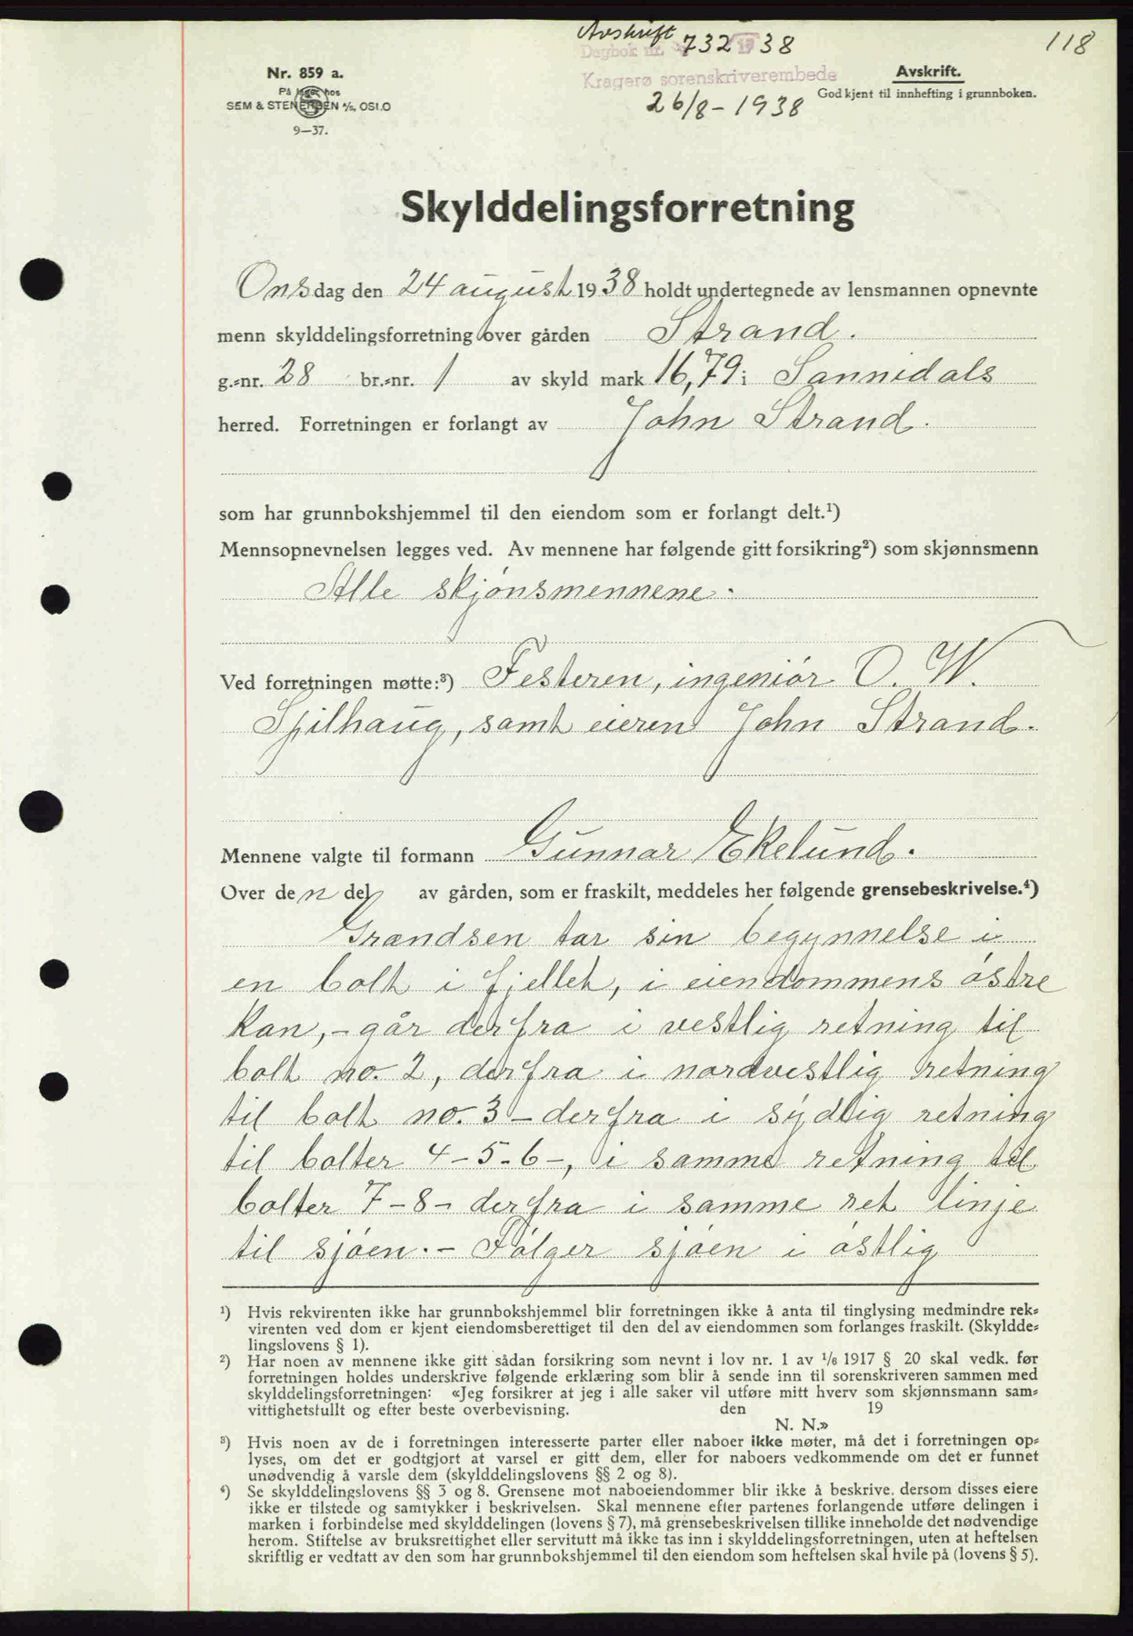 Avskrift
118
Dagbok nr. 732 19 38
Kragerø sorenskriverembede
26/8-1938
Nr. 859 a.
På lager hos
SEM & STENERSEN A/S, OSLO
9—37.
Avskrift.
Godkjent til innhefting i grunnboken.
Skylddelingsforretning
Onsdag den 24 august 1938 holdt undertegnede av lensmannen opnevnte
menn skylddelingsforretning over gården Strand.
g.-nr. 28 br.-nr. 1 av skyld mark 16,79 i Sannidals
herred. Forretningen er forlangt av John Strand.
som har grunnbokshjemmel til den eiendom som er forlangt delt.¹)
Mennsopnevnelsen legges ved. Av mennene har følgende gitt forsikring²) som skjønnsmenn
Alle skjönsmennene.
Ved forretningen møtte:³) Festeren, ingeniör O. W.
Spilhaug, samt eieren John Strand.
Mennene valgte til formann Gunnar Ekelund.
Over den del av gården, som er fraskilt, meddeles her følgende grensebeskrivelse.⁴)
Grændsen tar sin begynnelse i
en bolt i fjellet, i eiendommens östre
kan,- går derfra i vestlig retning til
bolt no. 2, derfra i nordvestlig retning
til bolt no. 3 - derfra i sydlig retning
til bolter 4-5-6-, i samme retning til
bolter 7-8- derfra i samme ret linje
til sjöen.- Fölger sjöen i östlig
¹) Hvis rekvirenten ikke har grunnbokshjemmel blir forretningen ikke å anta til tinglysing medmindre rek-
virenten ved dom er kjent eiendomsberettiget til den del av eiendommen som forlanges fraskilt. (Skyldde-
lingslovens § 1).
²) Har noen av mennene ikke gitt sådan forsikring som nevnt i lov nr. 1 av 1/6 1917 § 20 skal vedk. før
forretningen holdes underskrive følgende erklæring som blir å sende inn til sorenskriveren sammen med
skylddelingsforretningen: «Jeg forsikrer at jeg i alle saker vil utføre mitt hverv som skjønnsmann sam-
vittighetsfullt og efter beste overbevisning. den 19
N. N.»
³) Hvis noen av de i forretningen interesserte parter eller naboer ikke møter, må det i forretningen op-
lyses, om det er godtgjort at varsel er gitt dem, eller for naboers vedkommende om det er funnet
unødvendig å varsle dem (skylddelingslovens §§ 2 og 8).
⁴) Se skylddelingslovens §§ 3 og 8. Grensene mot naboeiendommer blir ikke å beskrive, dersom disses eiere
ikke er tilstede og samtykker i beskrivelsen. Skal mennene efter partenes forlangende utføre delingen i
marken i forbindelse med skylddelingen (lovens § 7), må grensebeskrivelsen tillike inneholde det nødvendige
herom. Stiftelse av bruksrettighet eller servitutt må ikke tas inn i skylddelingsforretningen, uten at heftelsen
skriftlig er vedtatt av den som har grunnbokshjemmel til den eiendom som heftelsen skal hvile på (lovens § 5).